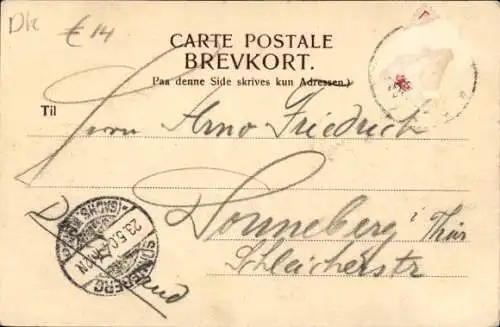 Dk € 14
CARTE POSTALE
BREVKORT.
(Paa denne Side skrives kun Adressen.)
Til
Herrn Arno Friedrich
Sonneberg i Thür
Schleicherstr
SONNEBERG
23.5.0